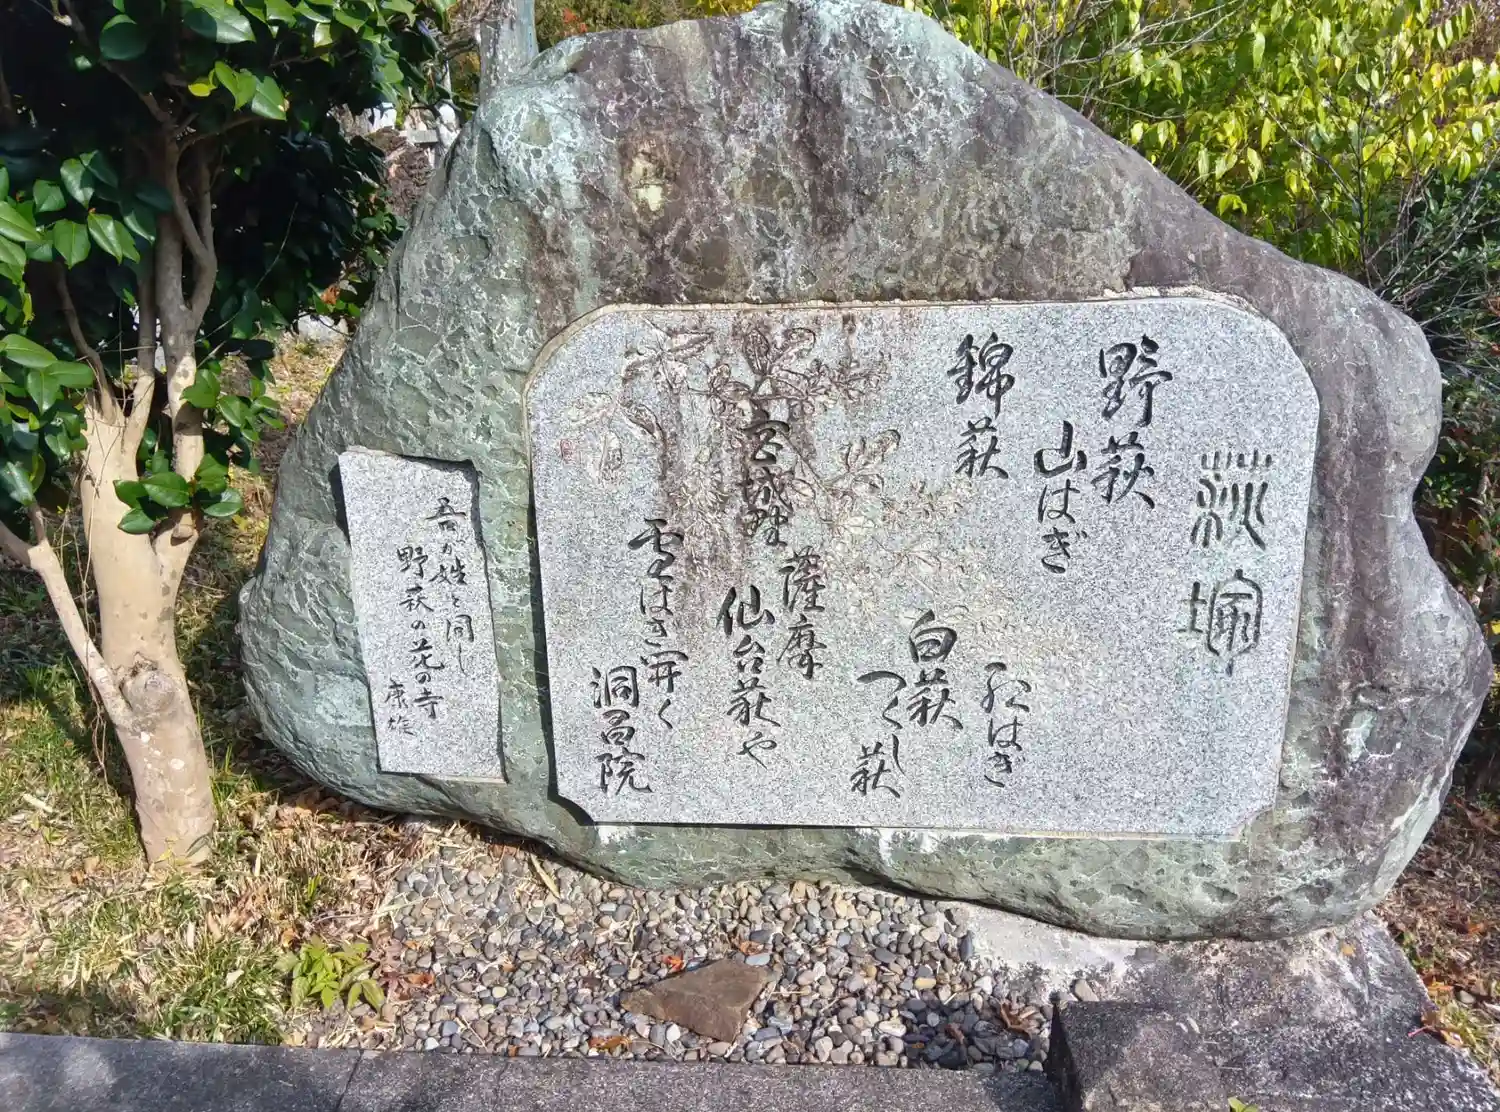 萩塚
野萩
山はぎ
紅はぎ
錦萩
白萩
つくし萩
宮城野
薩摩
仙台萩や
雪はぎ開く
洞昌院
吾が姓と同じ
野萩の花の寺
康雄